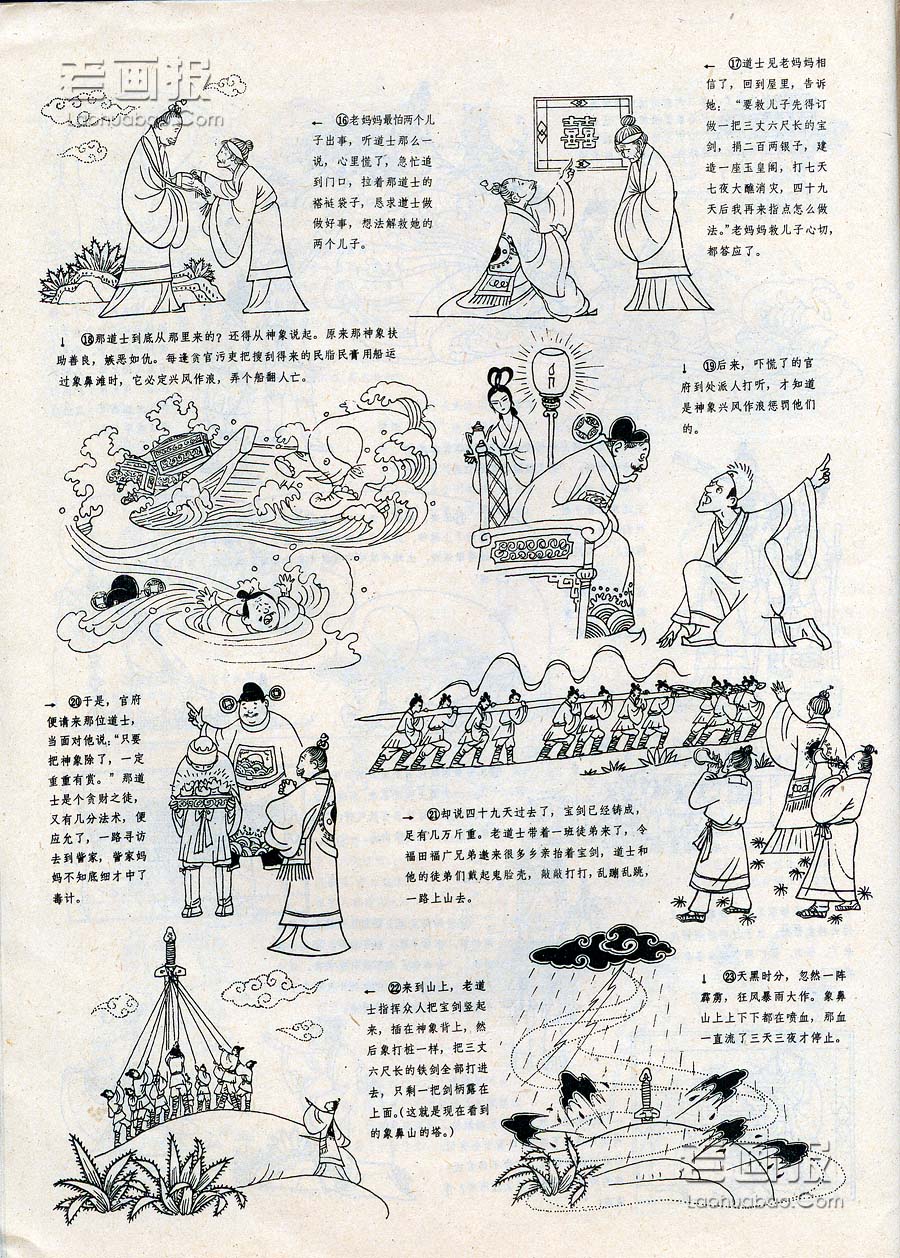 老画报
Laohuabao.Com
← ⑯老妈妈最怕两个儿
子出事，听道士那么一
说，心里慌了，急忙追
到门口，拉着那道士的
褡裢袋子，恳求道士做
做好事，想法解救她的
两个儿子。
囍
← ⑰道士见老妈妈相
信了，回到屋里，告诉
她：“要救儿子先得订
做一把三丈六尺长的宝
剑，捐二百两银子，建
造一座玉皇阁，打七天
七夜大醮消灾，四十九
天后我再来指点怎么做
法。”老妈妈救儿子心切，
都答应了。
↓ ⑱那道士到底从那里来的？还得从神象说起。原来那神象扶
助善良，嫉恶如仇。每逢贪官污吏把搜刮得来的民脂民膏用船运
过象鼻滩时，它必定兴风作浪，弄个船翻人亡。
↓ ⑲后来，吓慌了的官
府到处派人打听，才知道
是神象兴风作浪惩罚他们
的。
→ ⑳于是，官府
便请来那位道士，
当面对他说：“只要
把神象除了，一定
重重有赏。”那道
士是个贪财之徒，
又有几分法术，便
应允了，一路寻访
去到訾家，訾家妈
妈不知底细才中了
毒计。
→ ㉑却说四十九天过去了，宝剑已经铸成，
足有几万斤重。老道士带着一班徒弟来了，令
福田福广兄弟邀来很多乡亲抬着宝剑，道士和
他的徒弟们戴起鬼脸壳，敲敲打打，乱蹦乱跳，
一路上山去。
← ㉒来到山上，老道
士指挥众人把宝剑竖起
来，插在神象背上，然
后象打桩一样，把三丈
六尺长的铁剑全部打进
去，只剩一把剑柄露在
上面。（这就是现在看到
的象鼻山的塔。）
↓ ㉓天黑时分，忽然一阵
霹雳，狂风暴雨大作。象鼻
山上上下下都在喷血，那血
一直流了三天三夜才停止。
老画报
Laohuabao.Com